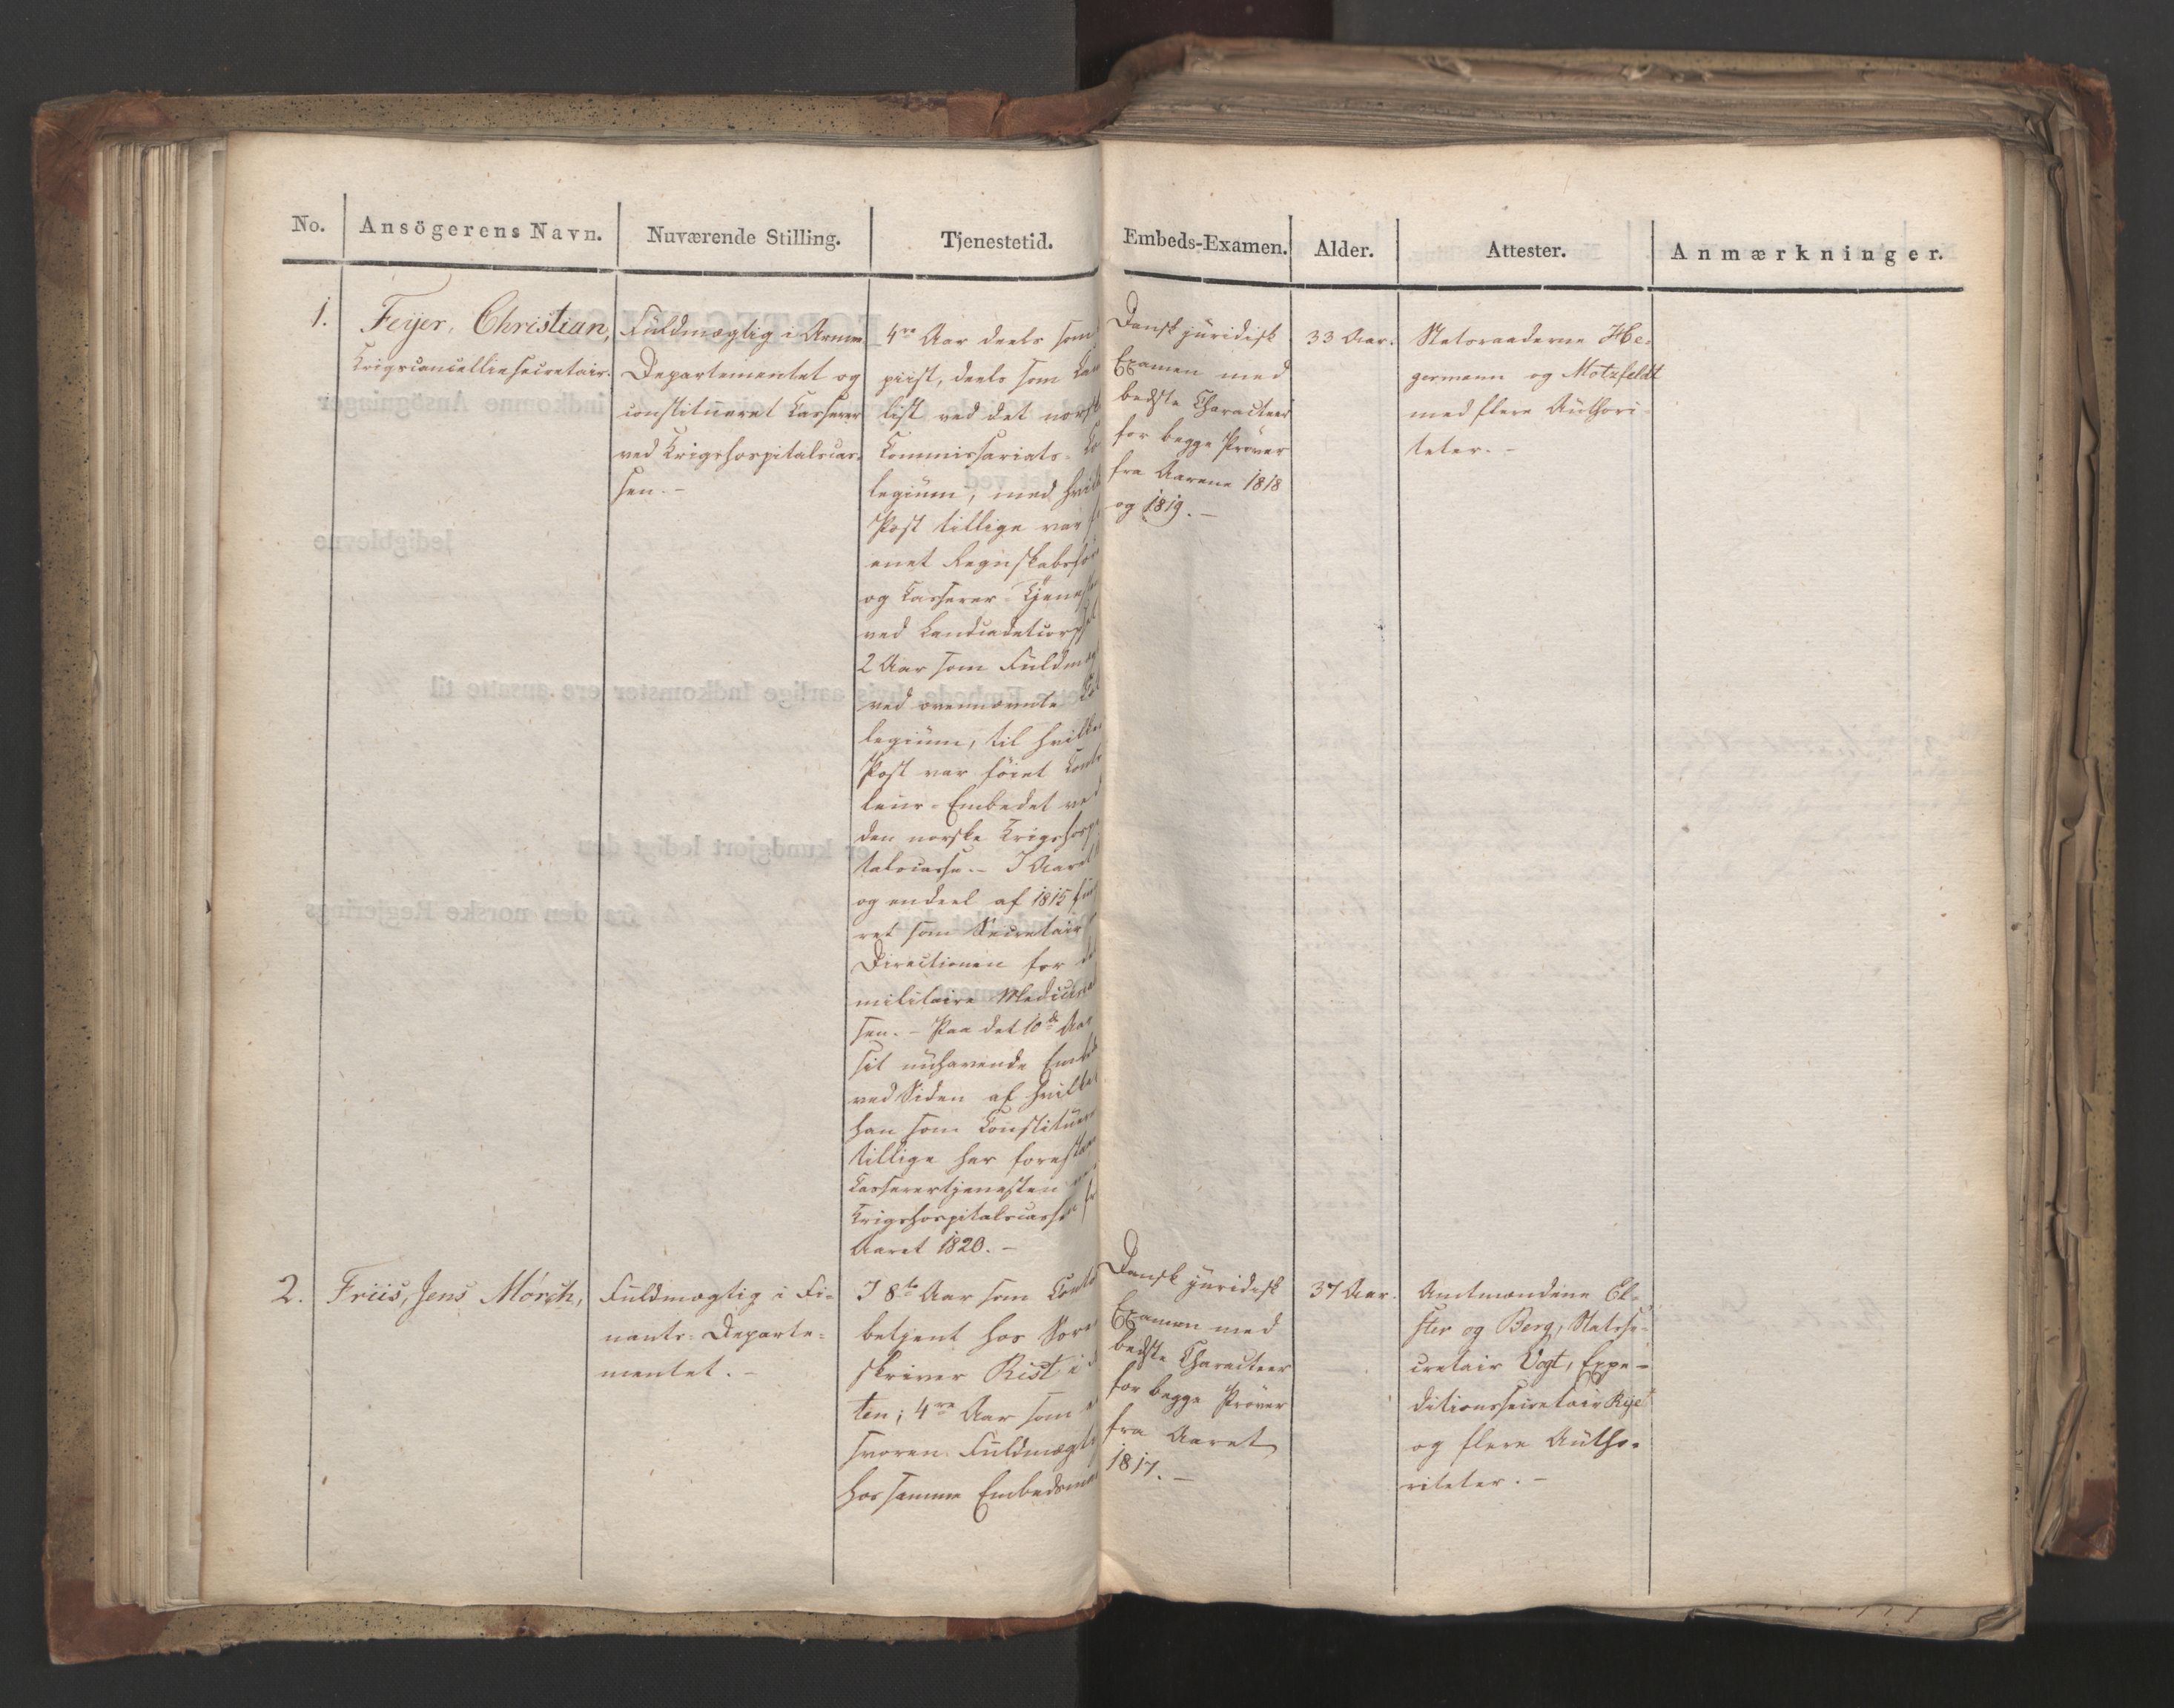 No. Ansögerens Navn. Nuværende Stilling. Tjenestetid. Embeds-Examen. Alder. Attester. Anmærkninger.
1.
Feyer, Christian,
Krigscancelliesecretair.
Fuldmægtig i Armee
Departementet og
constitueret Casserer
ved Krigshospitalscas-
sen. -
4re Aar deels som
piist, deels som
list ved det norsk
Commissariats-
legium, med hvilk
Post tillige var
enet Regnskabsfør
og Casserer Tjenest
ved Landcadetcorps
2 Aar som Fuldmæg
ved ovennævnte Col
legium, til hvilke
Post var føiet Contr
leur-Embedet ved
den norske Krigshosp
talscasse. - I Aaret
og endeel af 1815
ret som Secretair
Directionen for det
militaire Medicinal
sen. - Paa det 10de Aar
sit nuhavende Embed
ved Siden af hvilket
han som Constituer
tillige har forestaa
Casserertjenesten
Krigshospitalscasse
Aaret 1820. -
Dansk juridisk
Examen med
bedste Characteer
for begge Prøver
fra Aarene 1818
og 1819. -
33 Aar.
Statsraaderne He-
germann og Motzfeldt
med flere Authori-
teter. -
2.
Friis, Jens Mörch,
Fuldmægtig i Fi-
nants-Departe-
mentet. -
I 8te Aar som Conto
betjent hos Sore
skriver Rist i
ten; 4re Aar som
svoren Fuldmægtig
hos samme Embedsman
Dansk juridisk
Examen med
bedste Characteer
for begge Prøver
fra Aaret
1817. -
37 Aar.
Amtmændene El-
ster og Berg, Statsse-
cretair Vogt, Expe-
ditionssecretair Rye
og flere Autho-
riteter. -